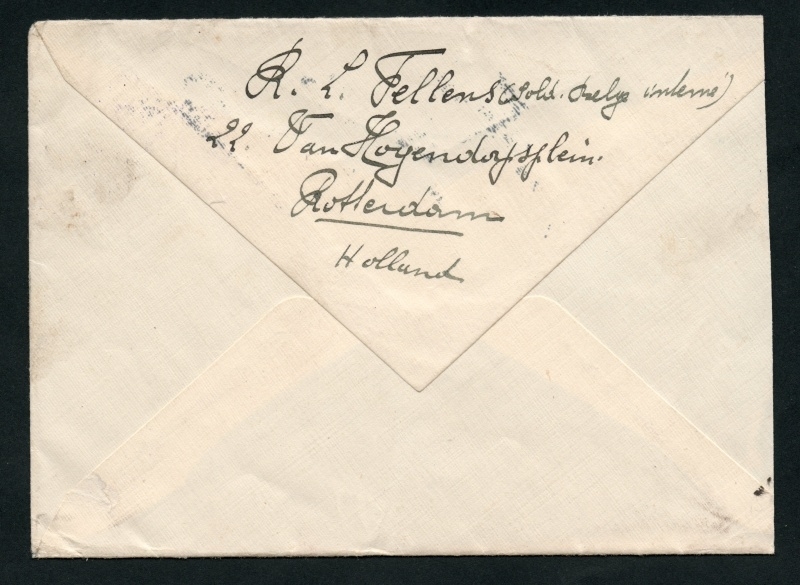 R. L. Fellens (Sold. belge interné)
22. Van Hogendorpsplein.
Rotterdam
Holland